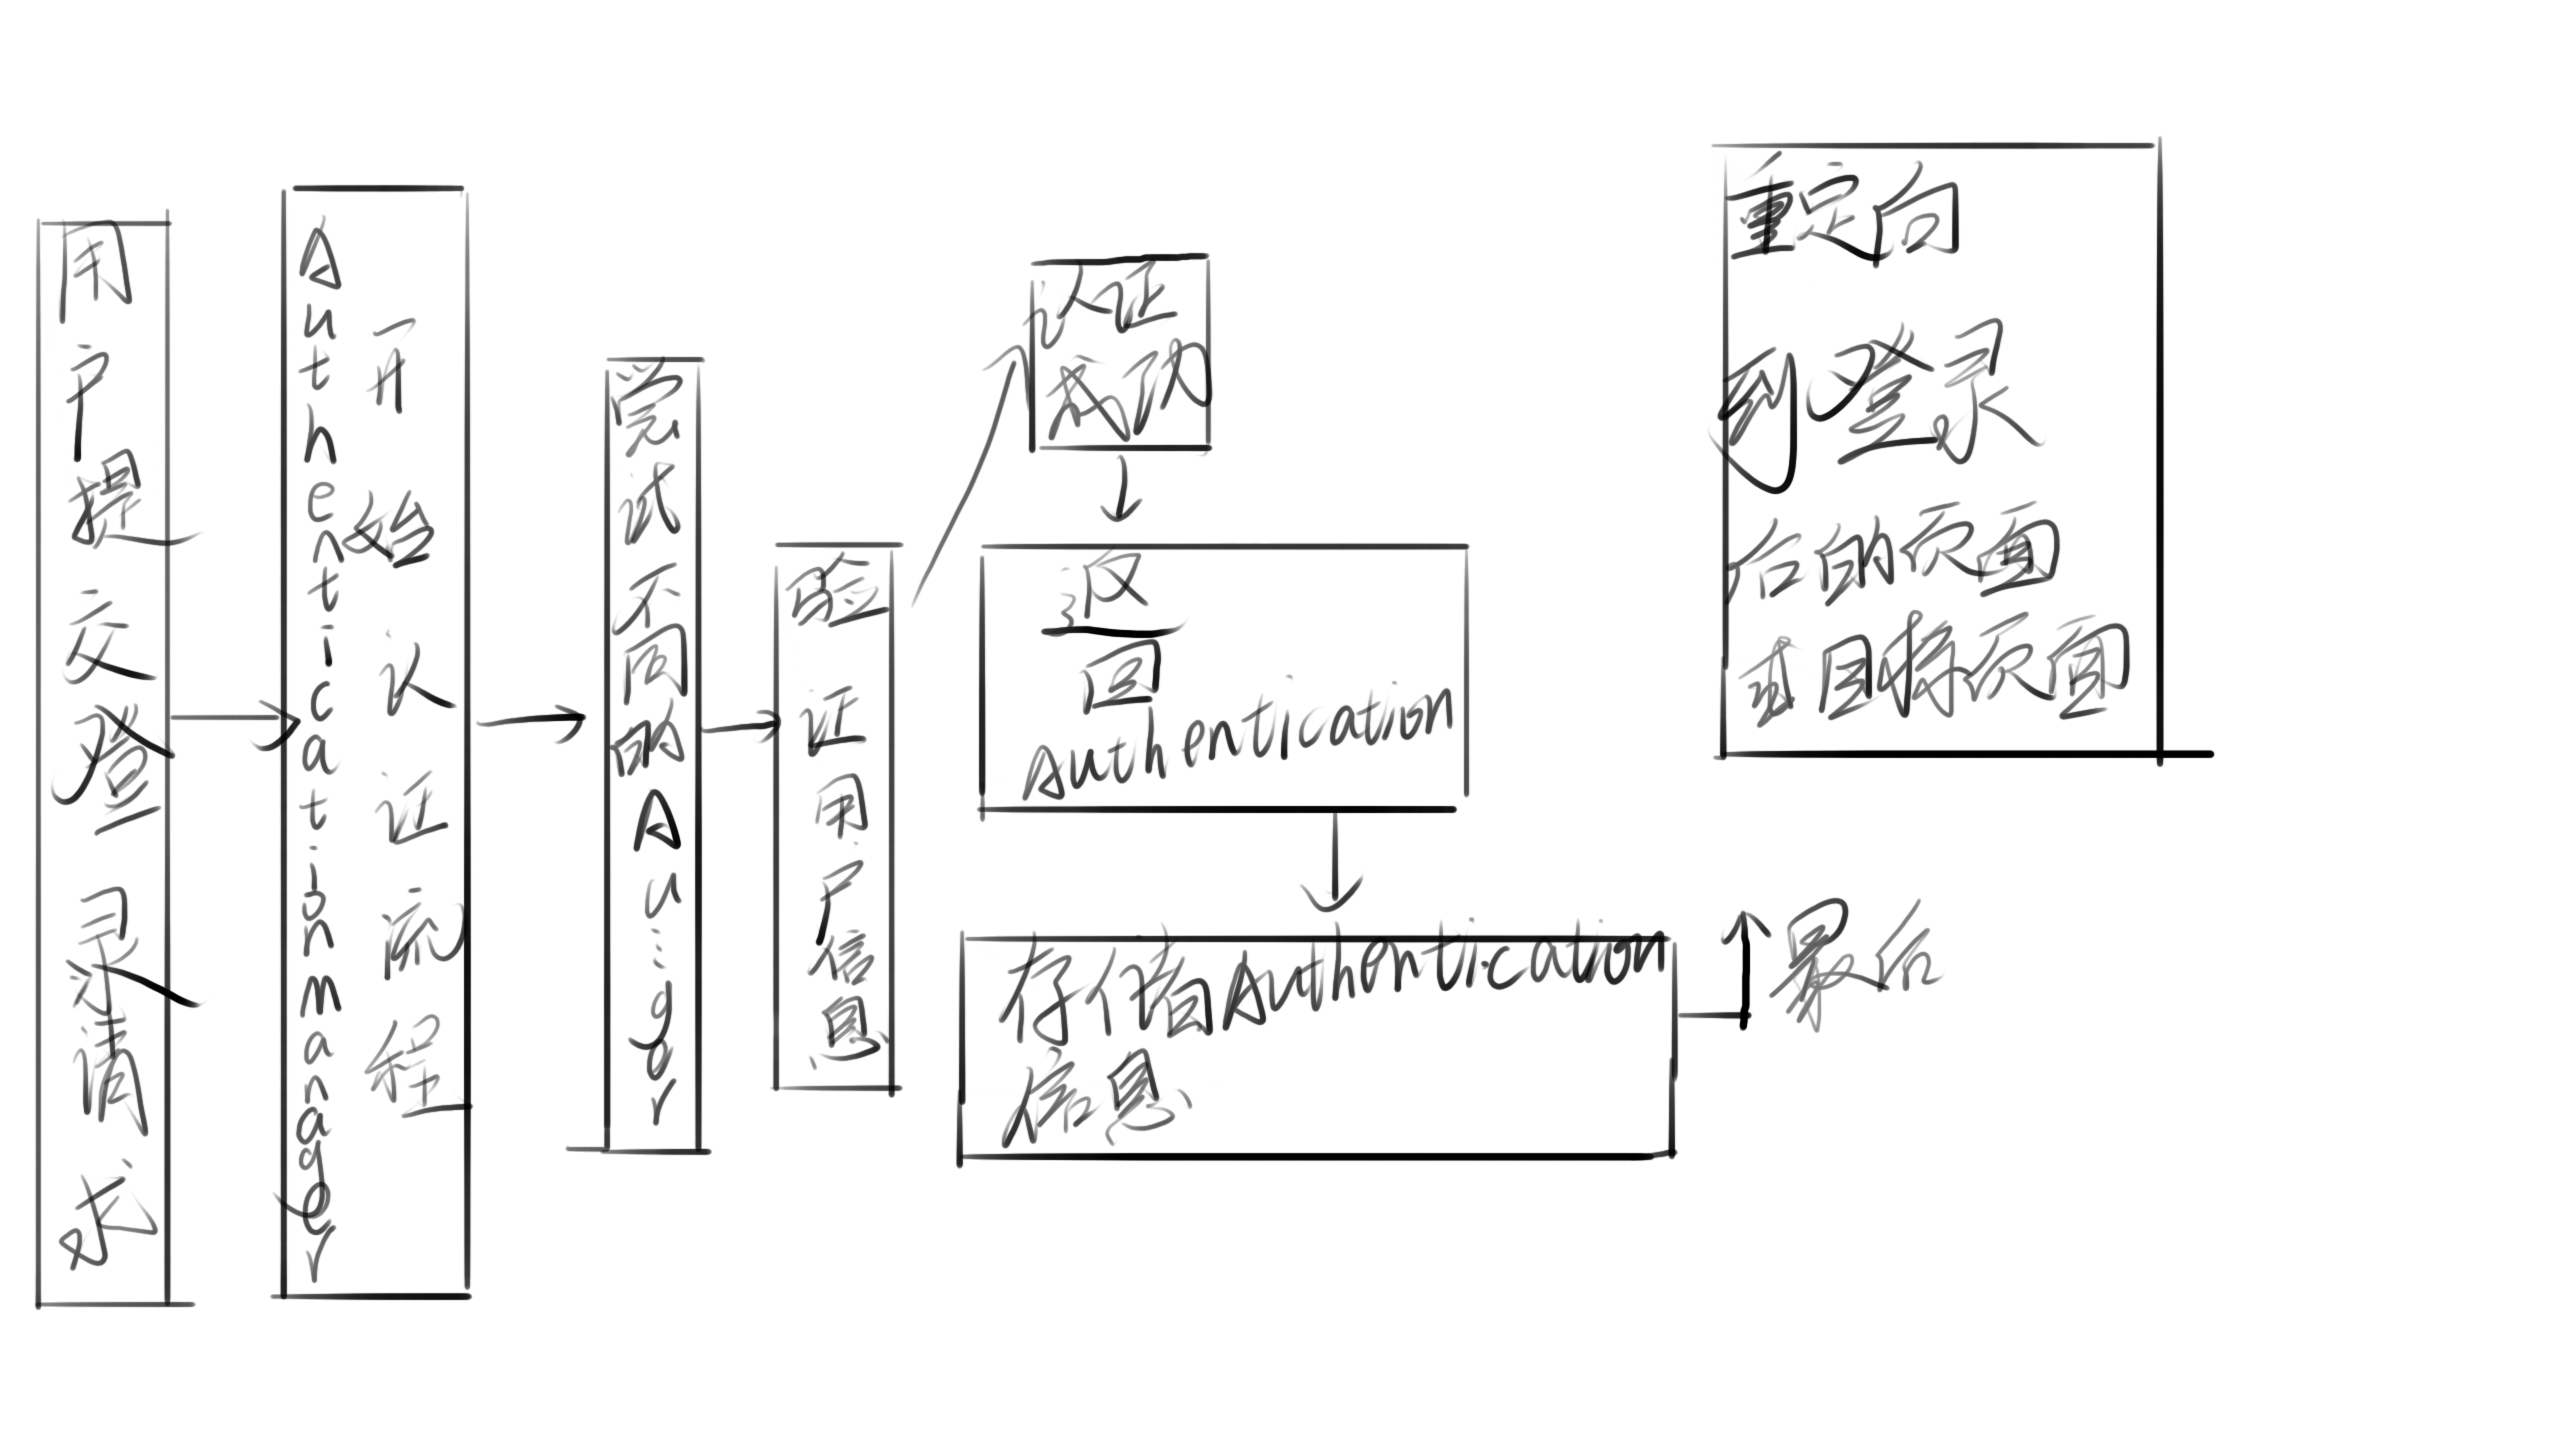 用户提交登录请求
Authenticationmanager
开始认证流程
尝试不同的Au...gor
验证用户信息
认证
成功
返
回
Authentication
存储Authentication
信息
最后
重定向
到登录
后的页面
或目标页面